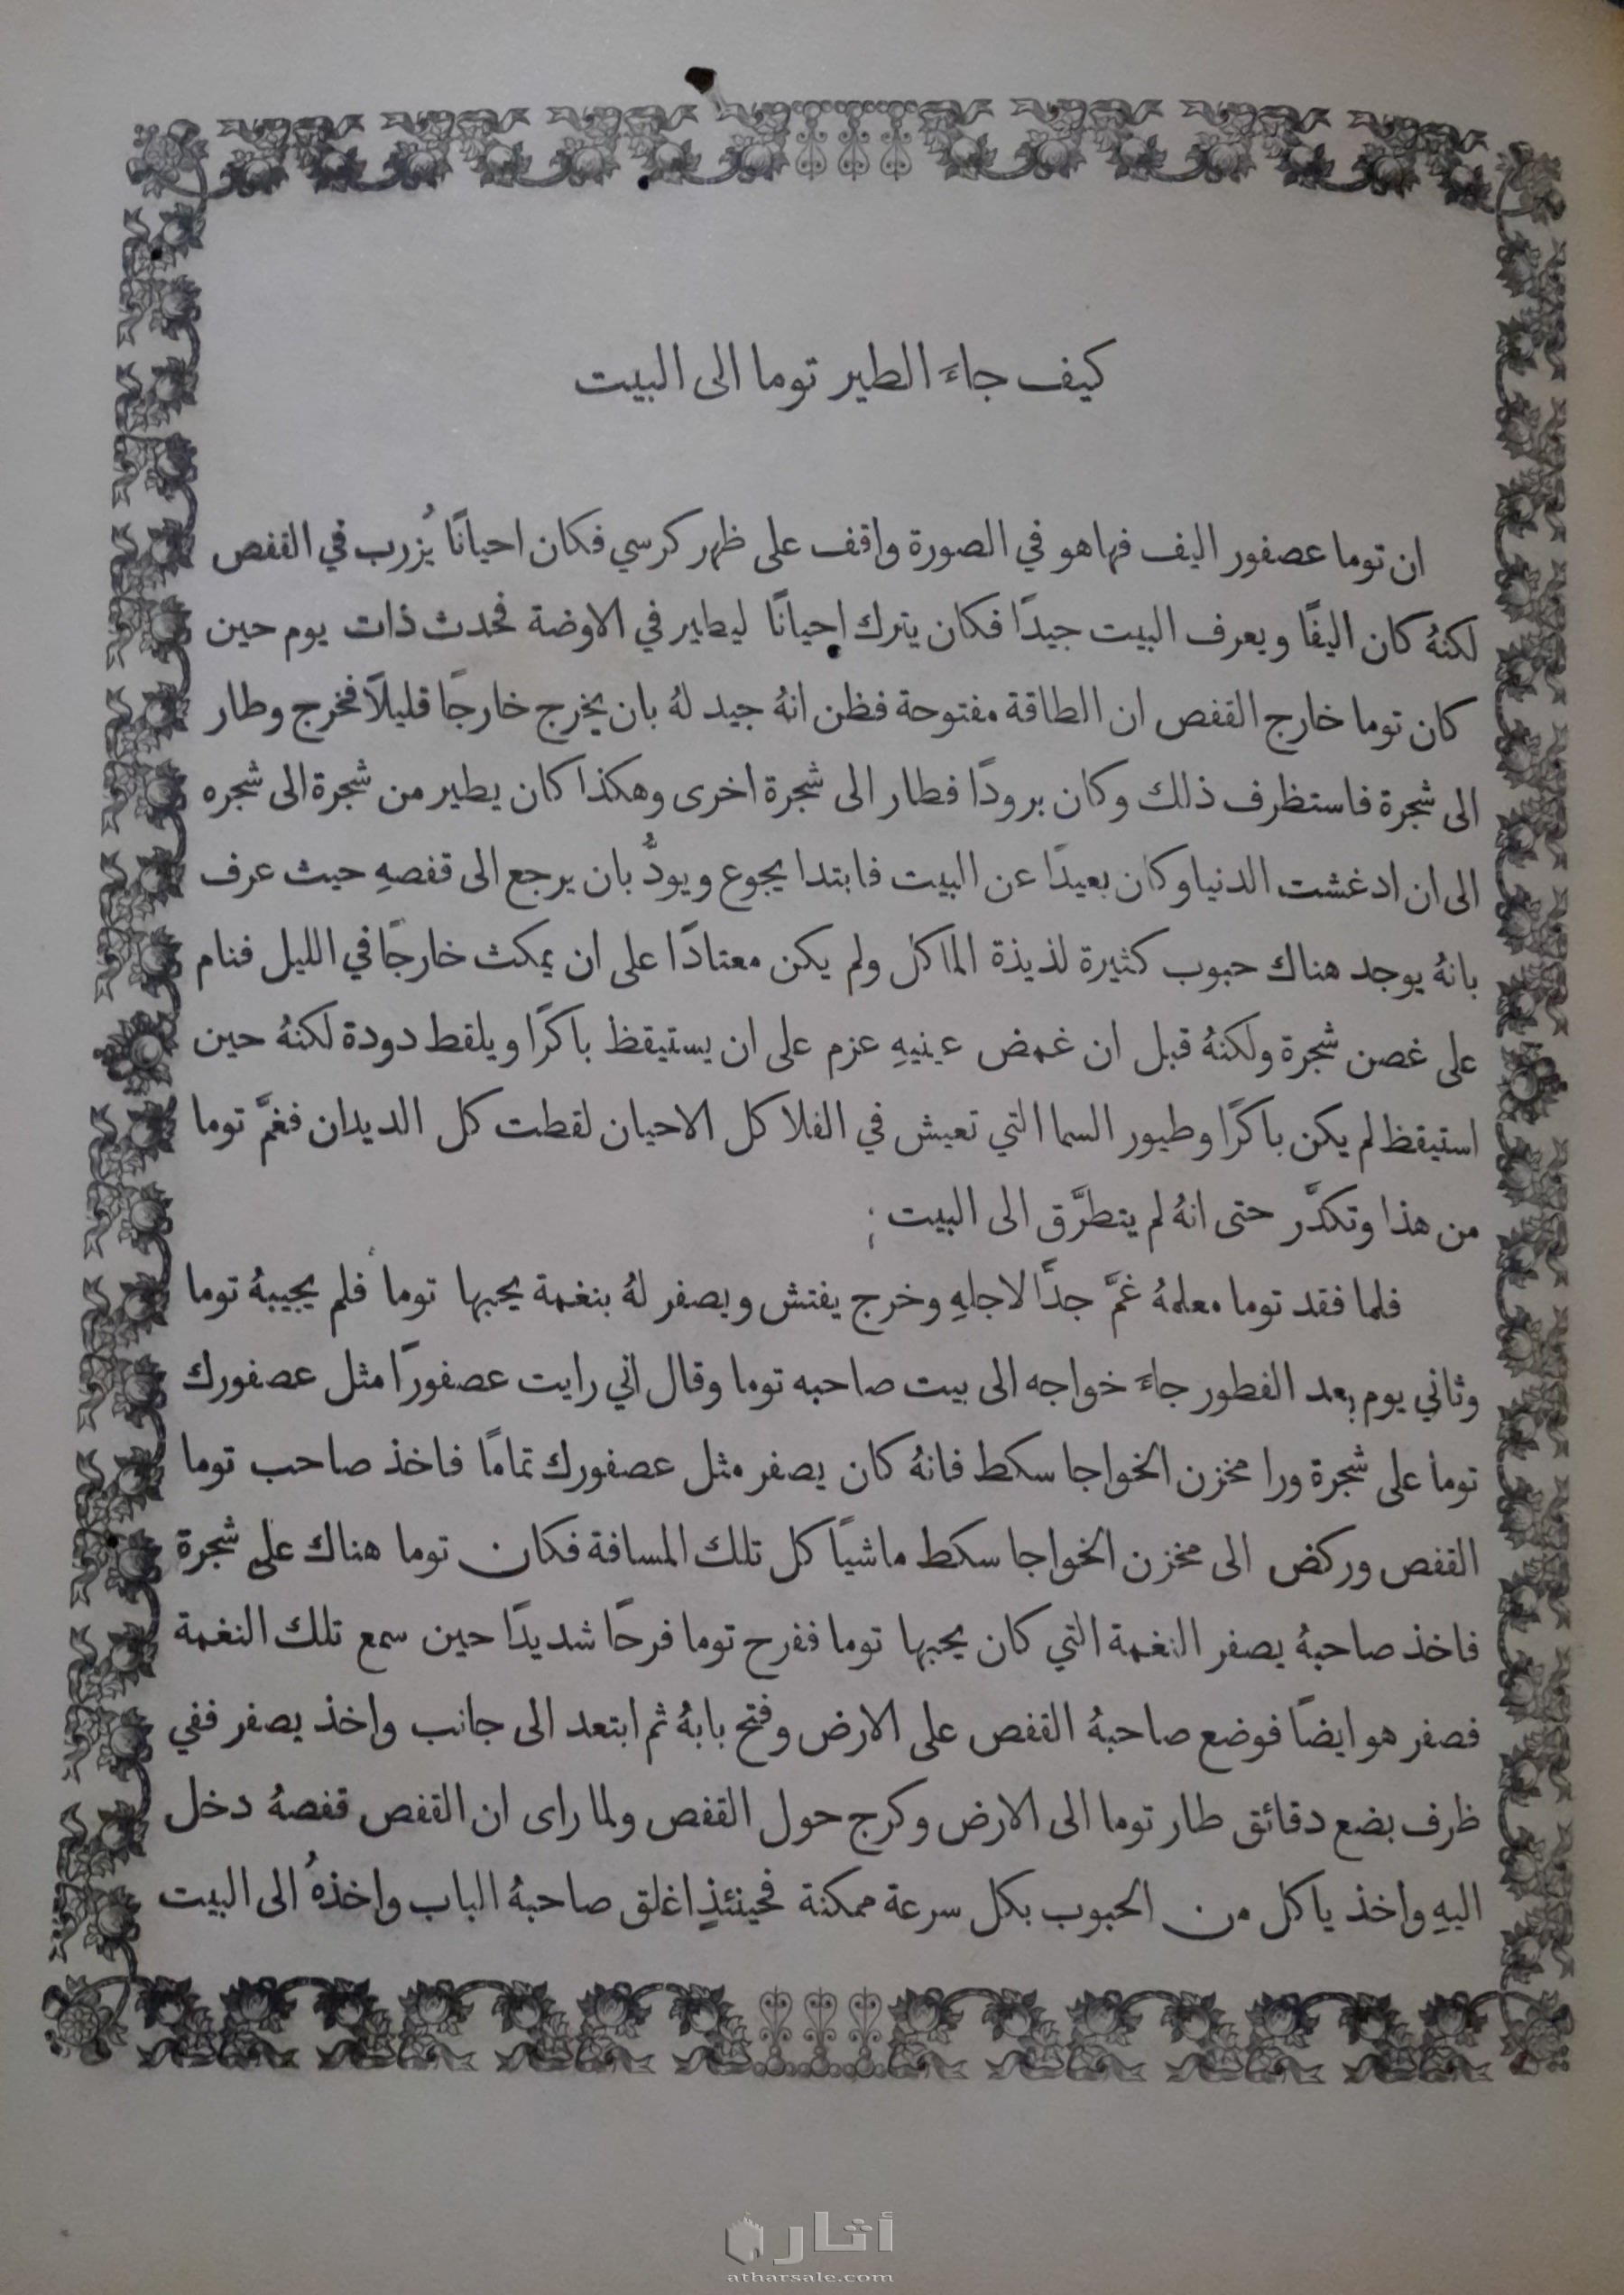 كيف جاءَ الطير توما الى البيت
ان توما عصفور اليف فهاهو في الصورة واقف على ظهر كرسي فكان احيانًا يُزرب في القفص
لكنهُ كان اليفًا ويعرف البيت جيدًا فكان يترك احيانًا ليطير في الاوضة فحدث ذات يوم حين
كان توما خارج القفص ان الطاقة مفتوحة فظن انهُ جيد لهُ بان يخرج خارجًا قليلًا فخرج وطار
الى شجرة فاستظرف ذلك وكان برودًا فطار الى شجرة اخرى وهكذا كان يطير من شجرة الى شجره
الى ان ادغشت الدنيا وكان بعيدًا عن البيت فابتدا يجوع ويودُّ بان يرجع الى قفصهِ حيث عرف
بانهُ يوجد هناك حبوب كثيرة لذيذة الماكل ولم يكن معتادًا على ان يمكث خارجًا في الليل فنام
على غصن شجرة ولكنهُ قبل ان غمض عينيهِ عزم على ان يستيقظ باكرًا ويلقط دودة لكنهُ حين
استيقظ لم يكن باكرًا وطيور السما التي تعيش في الفلا كل الاحيان لقطت كل الديدان فغمَّ توما
من هذا وتكدَّر حتى انهُ لم يتطرَّق الى البيت ؛
فلما فقد توما معلمهُ غمَّ جدًّا لاجلهِ وخرج يفتش ويصفر لهُ بنغمة يحبها توما فلم يجيبهُ توما
وثاني يوم بعد الفطور جاءَ خواجه الى بيت صاحبه توما وقال اني رايت عصفورًا مثل عصفورك
توما على شجرة ورا مخزن الخواجا سكط فانهُ كان يصفر مثل عصفورك تمامًا فاخذ صاحب توما
القفص وركض الى مخزن الخواجا سكط ماشيًا كل تلك المسافة فكان توما هناك على شجرة
فاخذ صاحبهُ يصفر النغمة التي كان يحبها توما ففرح توما فرحًا شديدًا حين سمع تلك النغمة
فصفر هو ايضًا فوضع صاحبهُ القفص على الارض وفتح بابهُ ثم ابتعد الى جانب واخذ يصفر ففي
ظرف بضع دقائق طار توما الى الارض وكرج حول القفص ولما راى ان القفص قفصهُ دخل
اليهِ واخذ ياكل من الحبوب بكل سرعة ممكنة فحينئذٍ اغلق صاحبهُ الباب واخذهُ الى البيت
أثار
atharsale.com